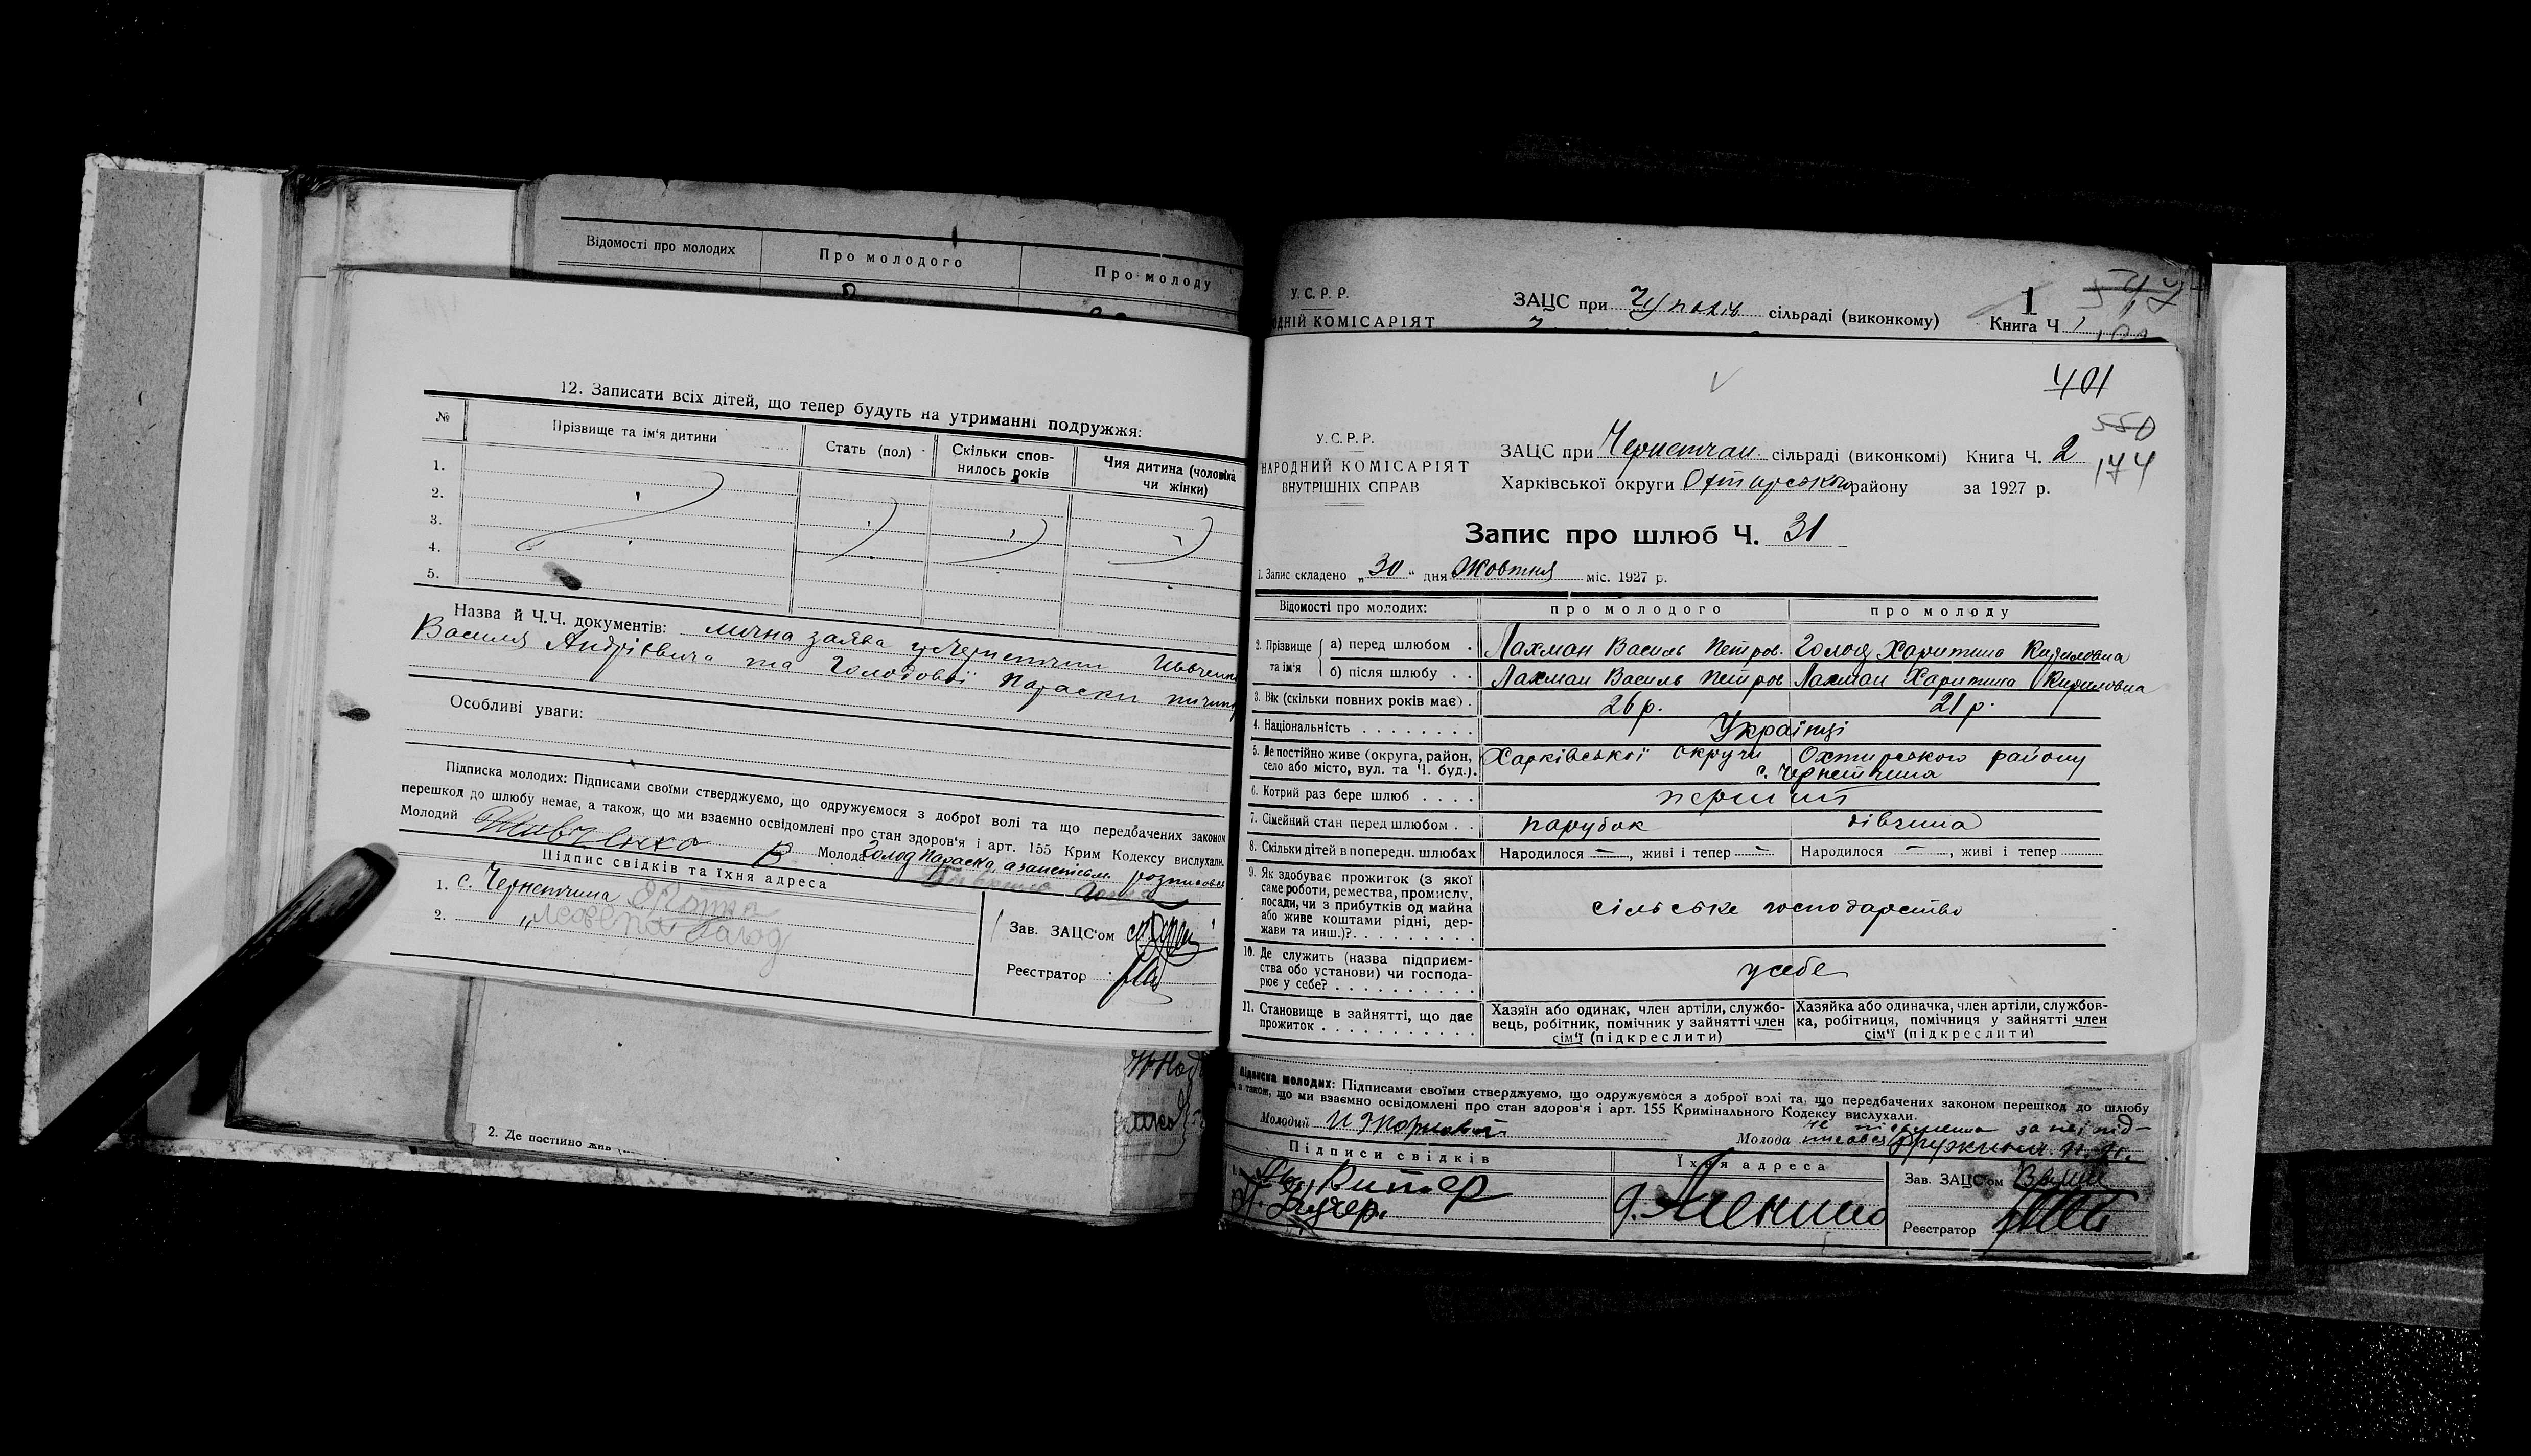 Відомості про молодих
Про молодого
Про молоду
12. Записати всіх дітей, що тепер будуть на утриманні подружжя:
№
Прізвище та ім'я дитини
Стать (пол)
Скільки спов-
нилось років
Чия дитина (чоловіка
чи жінки)
1.
2.
3.
4.
5.
Назва й Ч.Ч. документів: лична заява
Василя Андрієвича та Голодової Параски
Особливі уваги:
Підписка молодих: Підписами своїми стверджуємо, що одружуємося з доброї волі та що передбачених законом
перешкод до шлюбу немає, а також, що ми взаємно освідомлені про стан здоров'я і арт. 155 Крим Кодексу вислухали.
Молодий
Молода Голод Параска
Підпис свідків та їхня адреса
1. с. Чернетчина
2. "
Зав. ЗАЦС'ом
Реєстратор
2. Де постійно жив
У.С.Р.Р.
ОДНІЙ КОМІСАРІЯТ
ЗАЦС при
сільраді (виконкому)
1
Книга Ч 1
547
401
550
174
У.С.Р.Р.
НАРОДНИЙ КОМІСАРІЯТ
ВНУТРІШНІХ СПРАВ
ЗАЦС при Чернетчан. сільраді (виконкомі) Книга Ч. 2
Харківської округи Охтирського району за 1927 р.
Запис про шлюб Ч. 31
1. Запис складено „30“ дня Жовтня міс. 1927 р.
Відомості про молодих:
про молодого
про молоду
2. Прізвище та ім'я
а) перед шлюбом . Лахман Василь Петров. Голод Харитина Кириловна
б) після шлюбу . . Лахман Василь Петров Лахман Харитина Кириловна
3. Вік (скільки повних років має) . 26 р. 21 р.
4. Національність . . . . . . . . Українці
5. Де постійно живе (округа, район, Харківської округи Охтирського району
село або місто, вул. та Ч. буд.). с. Чернетчина
6. Котрий раз бере шлюб . . . . перший
7. Сімейний стан перед шлюбом . . парубок дівчина
8. Скільки дітей в попередн. шлюбах Народилося —, живі і тепер — Народилося —, живі і тепер
9. Як здобуває прожиток (з якої
саме роботи, ремества, промислу,
посади, чи з прибутків од майна
або живе коштами рідні, дер-
жави та инш.)?. . . . . . . . .
сільське господарство
10. Де служить (назва підприєм-
ства або установи) чи господа-
рює у себе? . . . . . . . . . .
у себе
11. Становище в зайнятті, що дає
прожиток . . . . . . . . . . .
Хазяїн або одинак, член артіли, службо-
вець, робітник, помічник у зайнятті член
сім'ї (підкреслити)
Хазяйка або одиначка, член артіли, службов-
ка, робітниця, помічниця у зайнятті член
сім'ї (підкреслити)
Підписка молодих: Підписами своїми стверджуємо, що одружуємося з доброї волі та, що передбачених законом перешкод до шлюбу
а також, що ми взаємно освідомлені про стан здоров'я і арт. 155 Кримінального Кодексу вислухали.
Молодий
Молода
Підписи свідків
Їхня адреса
Зав. ЗАЦС'ом
Реєстратор